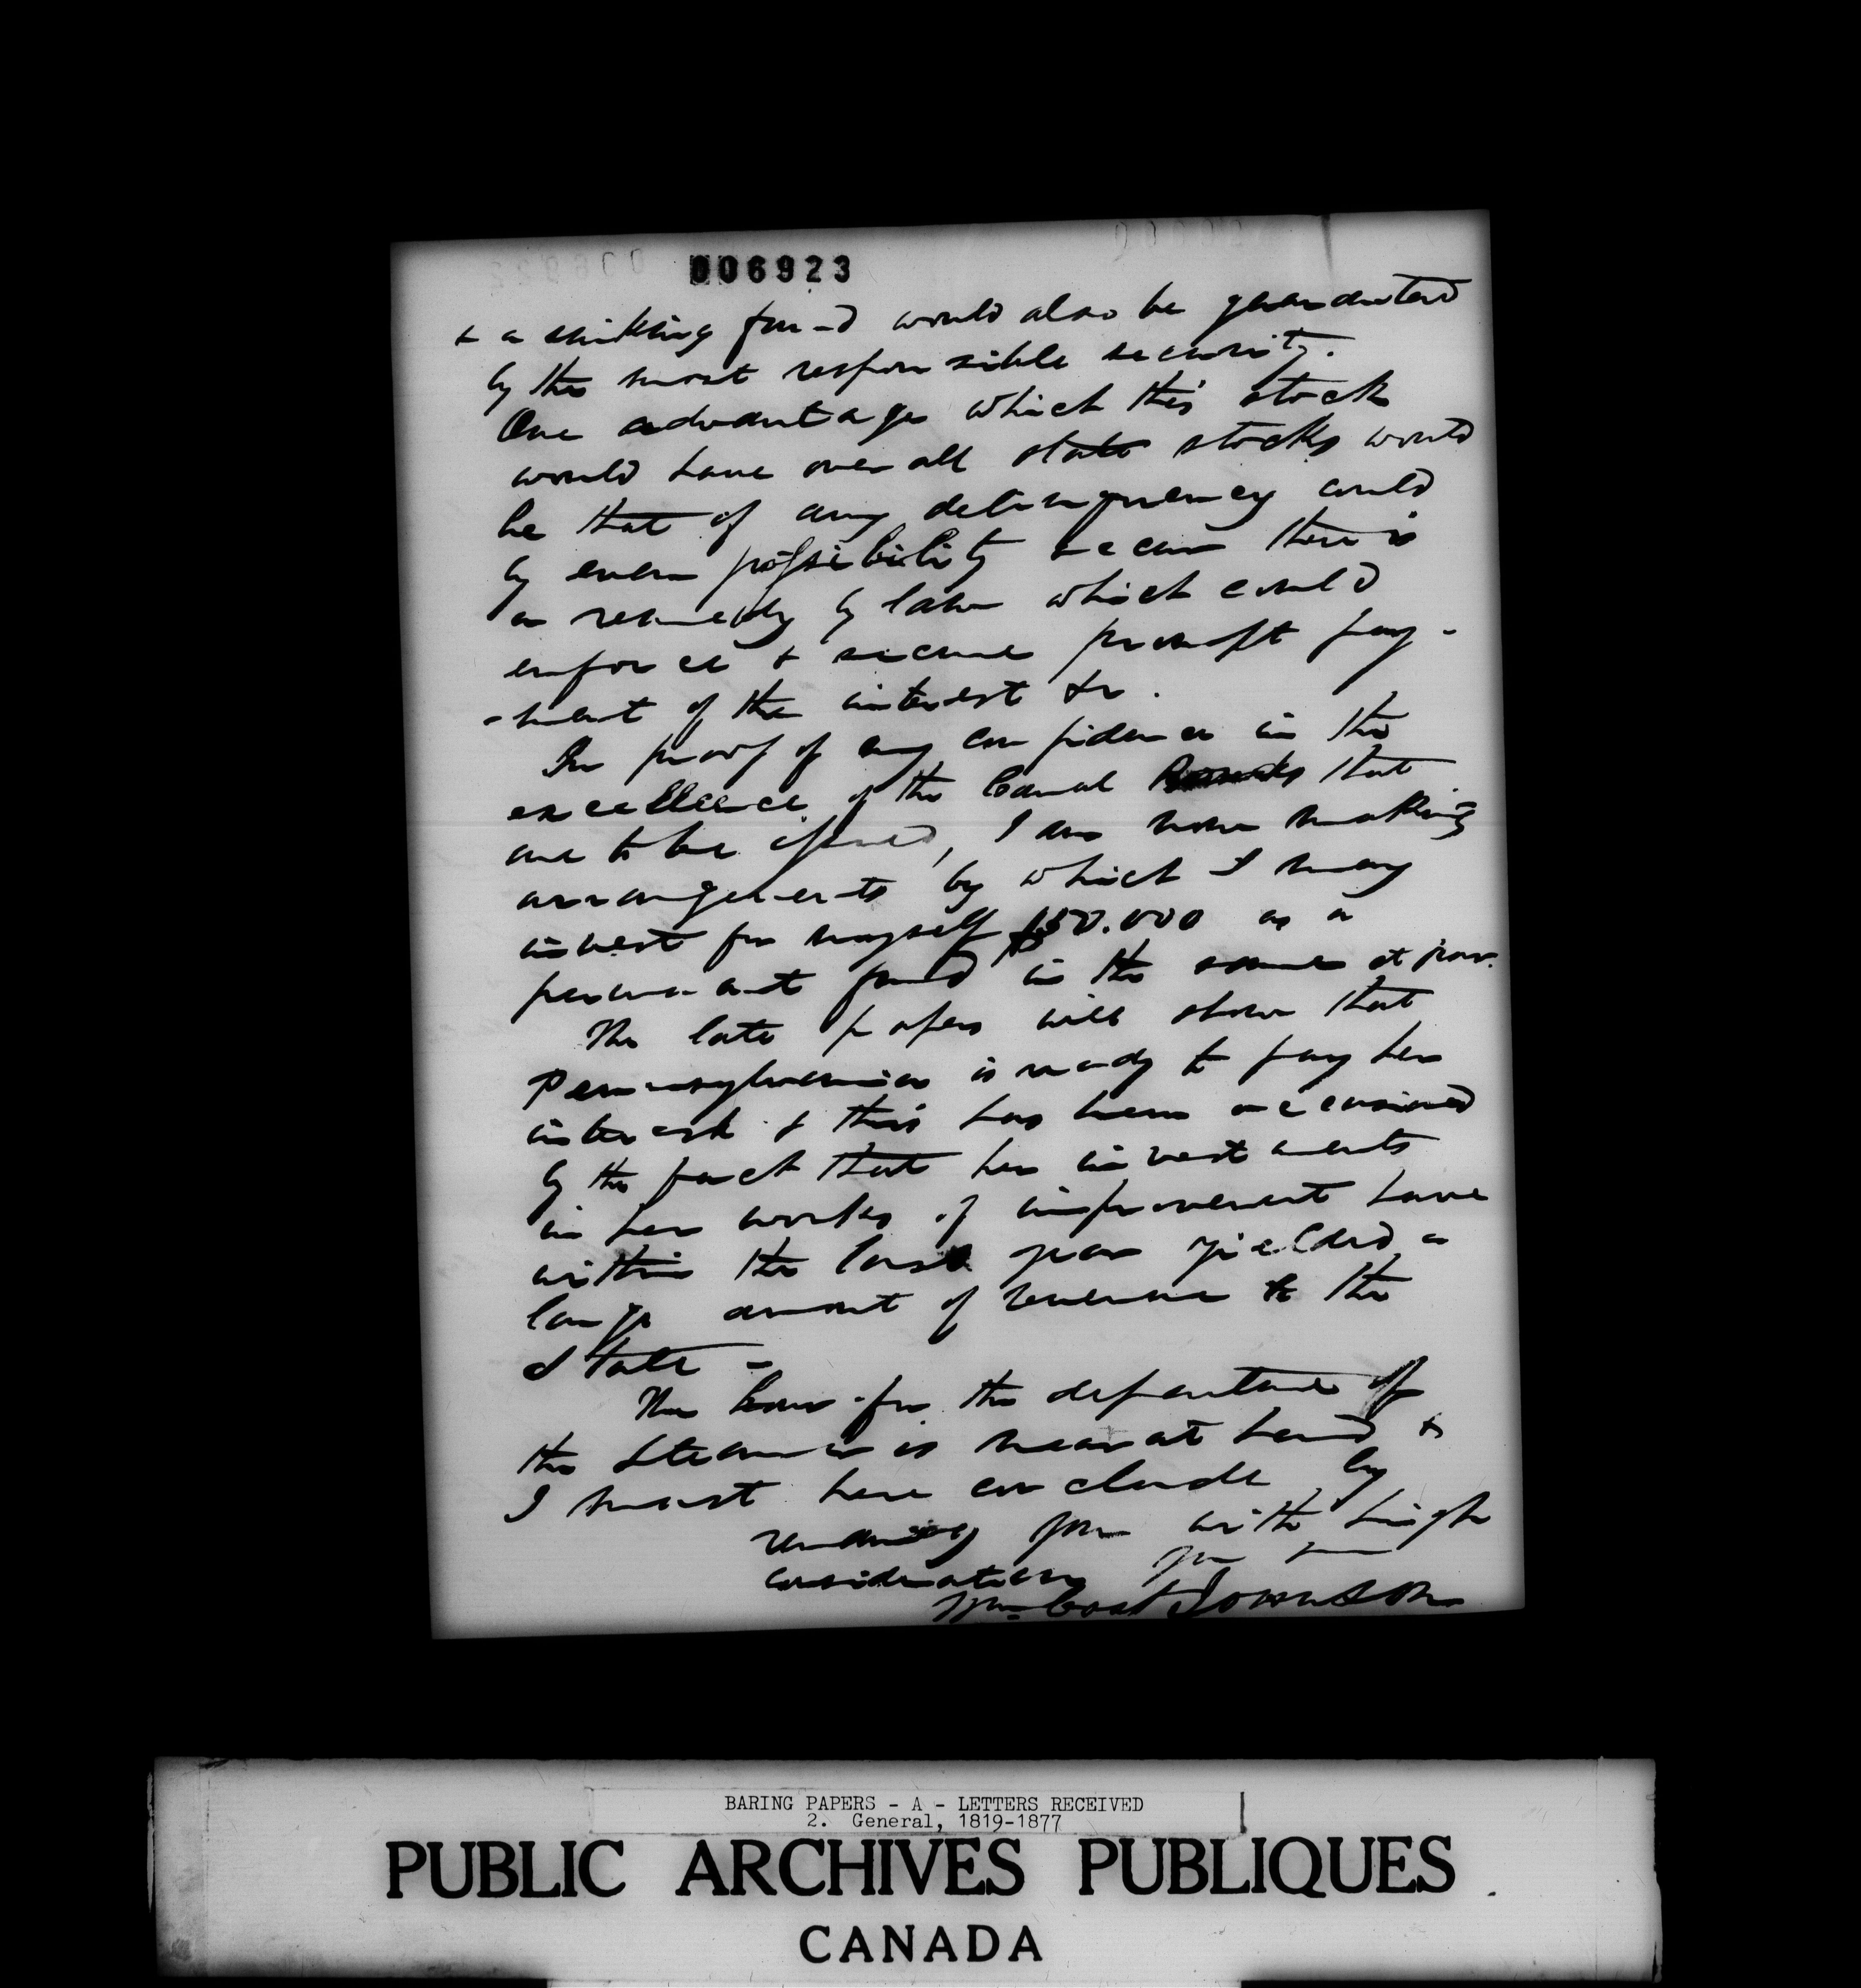 006923
& a sinking fund would also be guaranteed
by the most responsible security.
One advantage which this stock
would have over all state stocks would
be that if any delinquency could
by even possibility occur there is
a remedy by law which could
enforce & secure prompt pay-
-ment of the interest &c.
In proof of my confidence in the
excellence of the Canal Bonds that
are to be issued, I am now making
arrangements by which I may
invest for myself $50.000 as a
permanent fund in the same at par.
The late papers will show that
Pennsylvania is ready to pay her
interest & this has been occasioned
by the fact that her investments
in her works of improvement have
within the last year yielded a
large amount of revenue to the
State -
The hour for the departure of
the Steamer is near at hand &
I must here conclude by
you with high
consideration
Wm Cost Johnson
BARING PAPERS - A - LETTERS RECEIVED
2. General, 1819-1877
PUBLIC ARCHIVES PUBLIQUES
CANADA